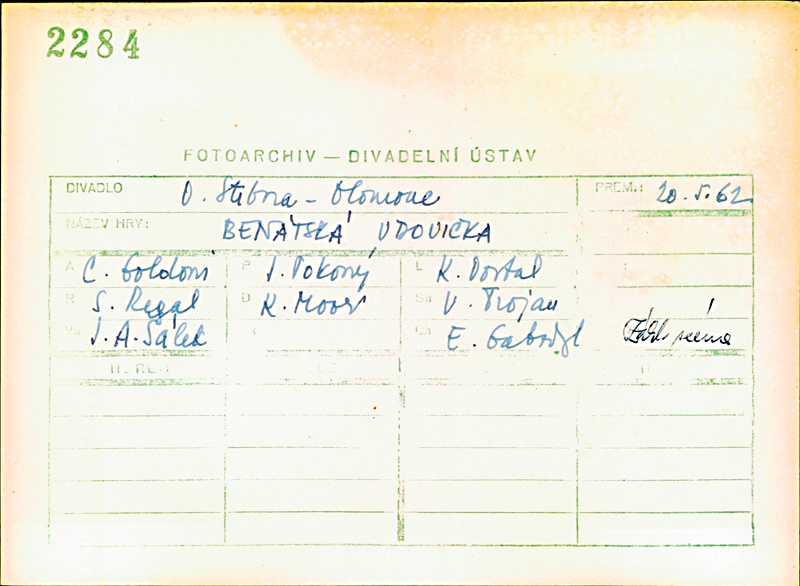 2284
FOTOARCHIV — DIVADELNÍ ÚSTAV
DIVADLO O. Stibora - Olomouc PREM.: 20. 5. 62
NÁZEV HRY: BENÁTSKÁ VDOVIČKA
A C. Goldoni P J. Pokorný L K. Dostal
R S. Regal D K. Moor Sn V. Trojan
J. A. Šálek Ch E. Gabriel